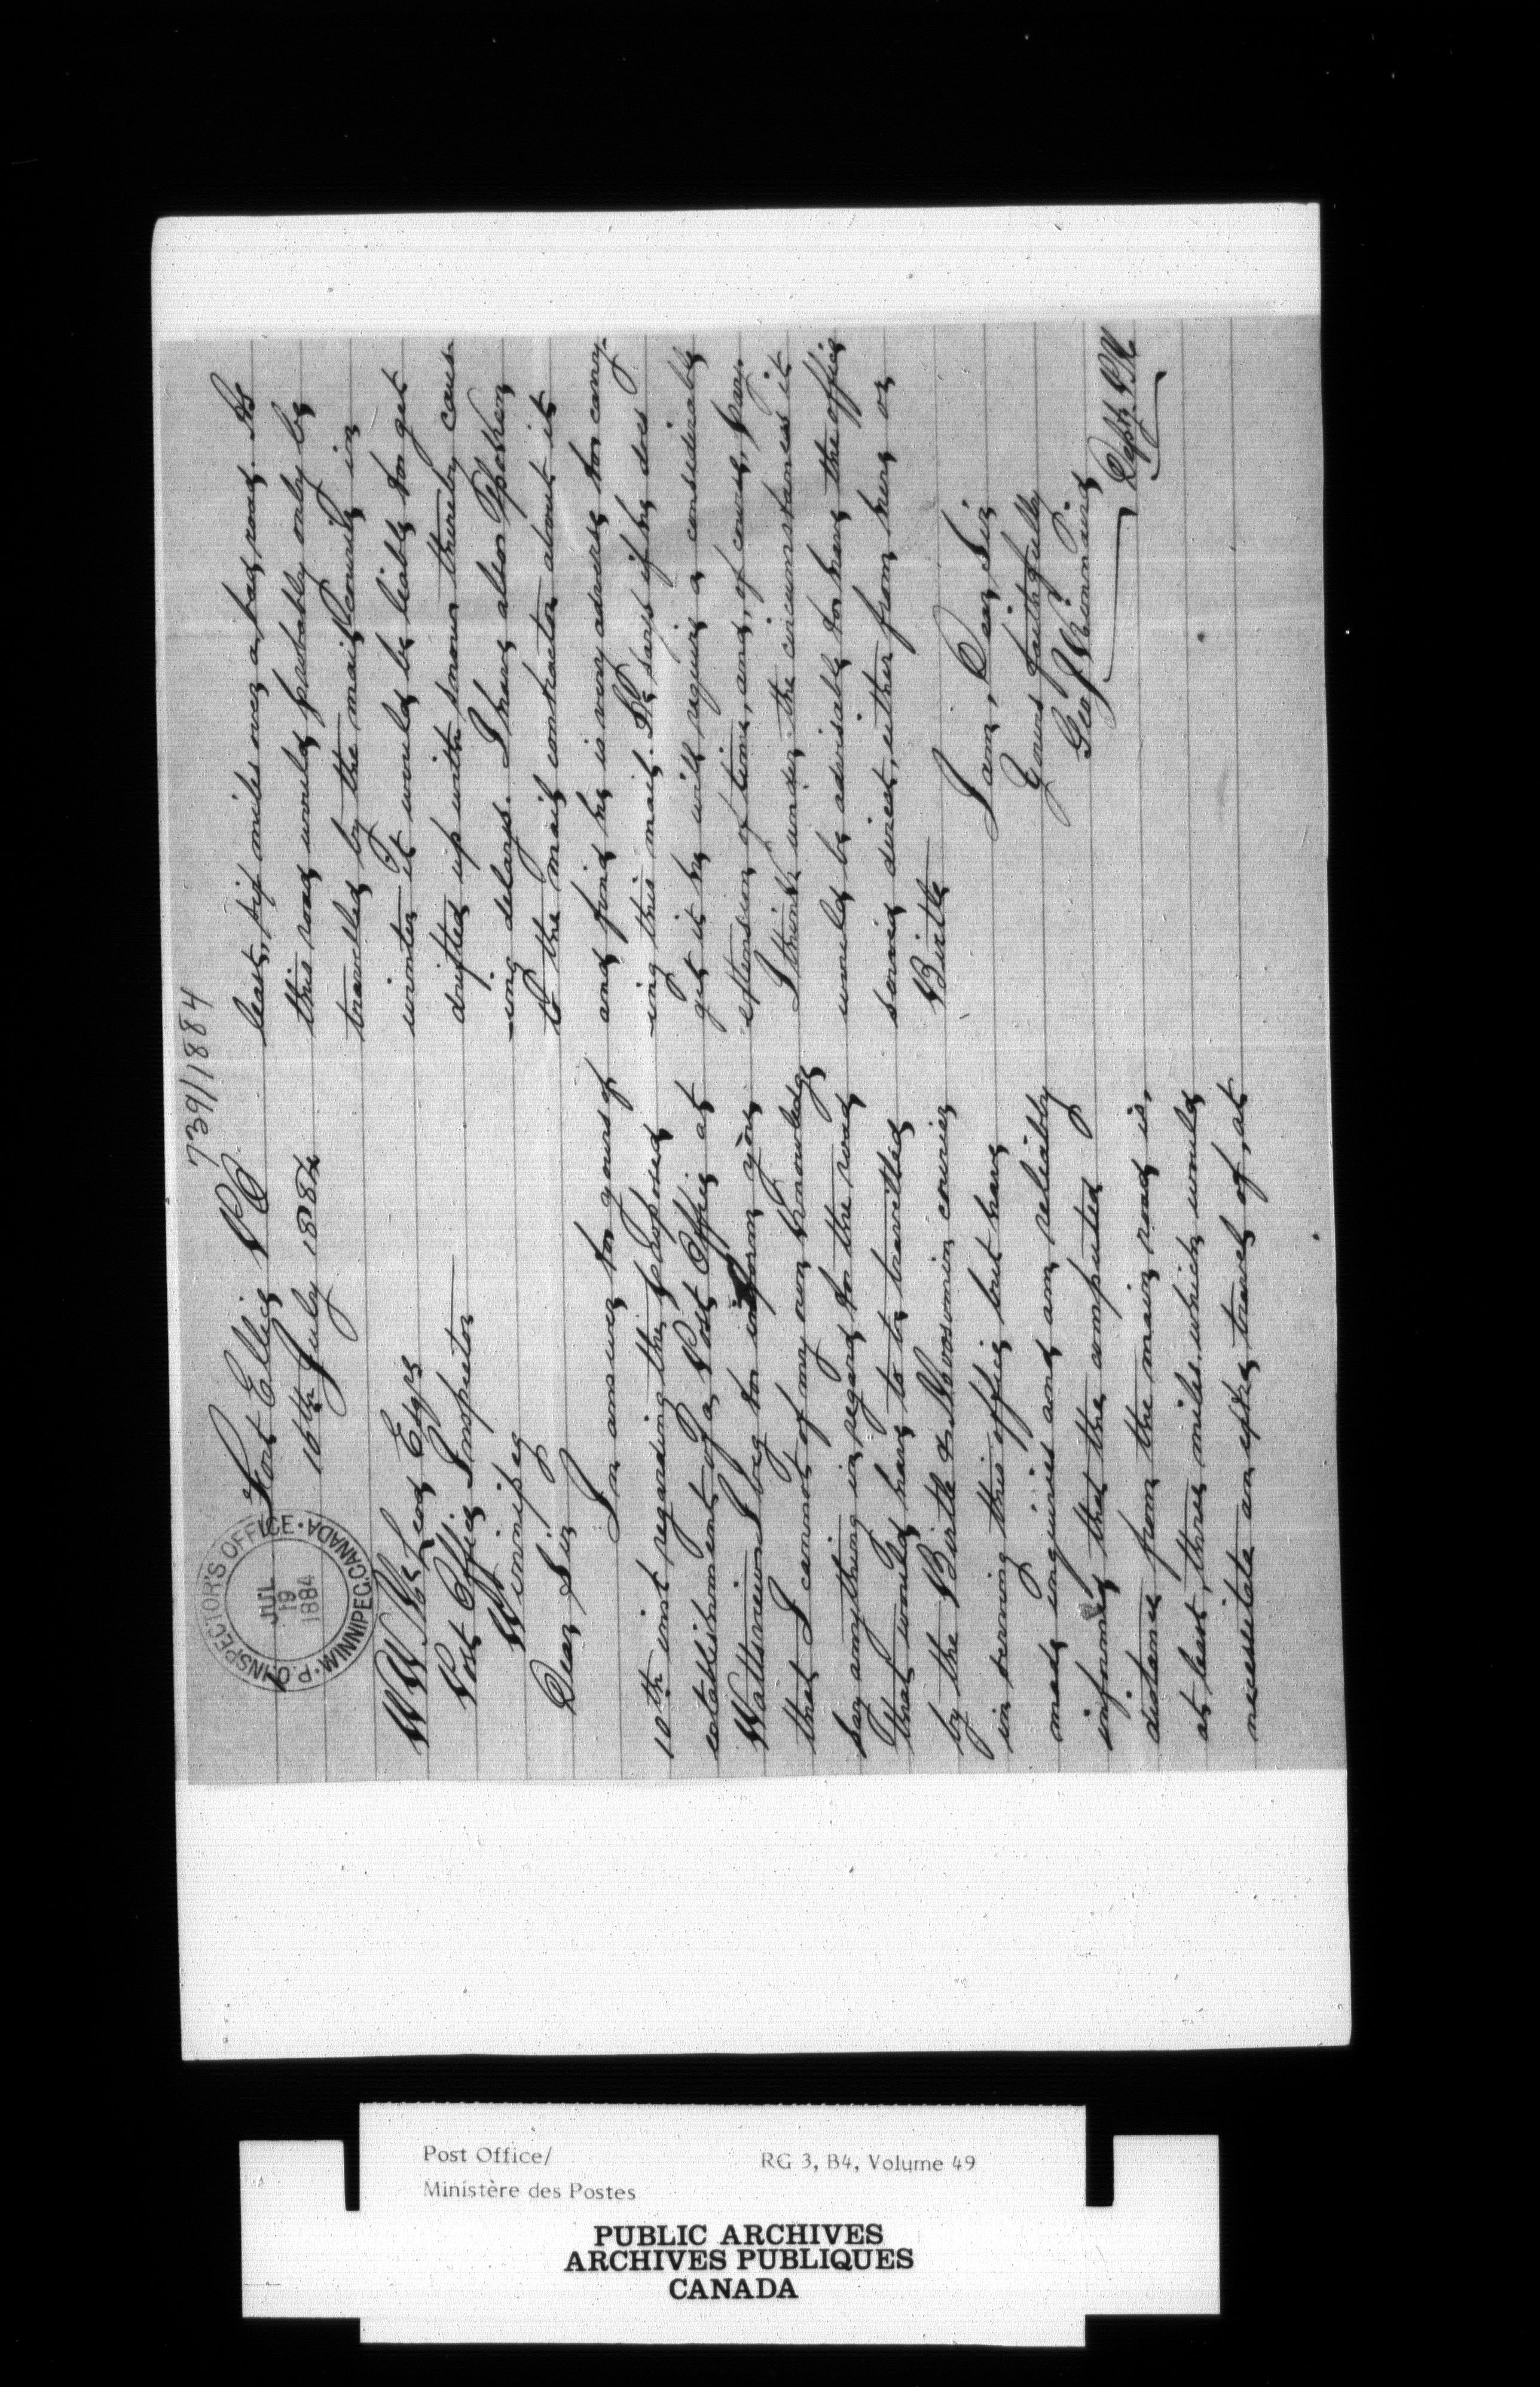 739/1884
P.O. INSPECTOR'S OFFICE · WINNIPEG. CANADA ·
JUL
19
1884
Fort Ellice P O
16th July 1884
W W McLeod Esqre
Post Office Inspector
Winnipeg
Dear Sir
In answer to yours of
10th inst regarding the proposed
establishment of a Post Office at
Wattsview I beg to inform you
that I cannot of my own knowledge
say anything in regard to the road
that would have to be travelled
by the Birtle & Moosomin courier
in serving this office but have
made inquiries and am reliably
informed that the computed
distance from the main road is,
at least, three miles which would
necessitate an extra travel of, at
least, six miles over a bad road. As
this road would probably only be
travelled by the mail courier in
winter it would be liable to get
drifted up with snow thereby caus-
-ing delays. I have also spoken
to the mail contractor about it
and find he is very adverse to carry-
-ing this mail. He says if he does
get it he will require a considerable
extension of time, and, of course, pay.
I think under the circumstances it
would be advisable to have the office
served direct, either from here or
Birtle
I am, Dear Sir
Yours faithfully
Geo J
Depty P.M
Post Office/
Ministère des Postes
RG 3, B4, Volume 49
PUBLIC ARCHIVES
ARCHIVES PUBLIQUES
CANADA